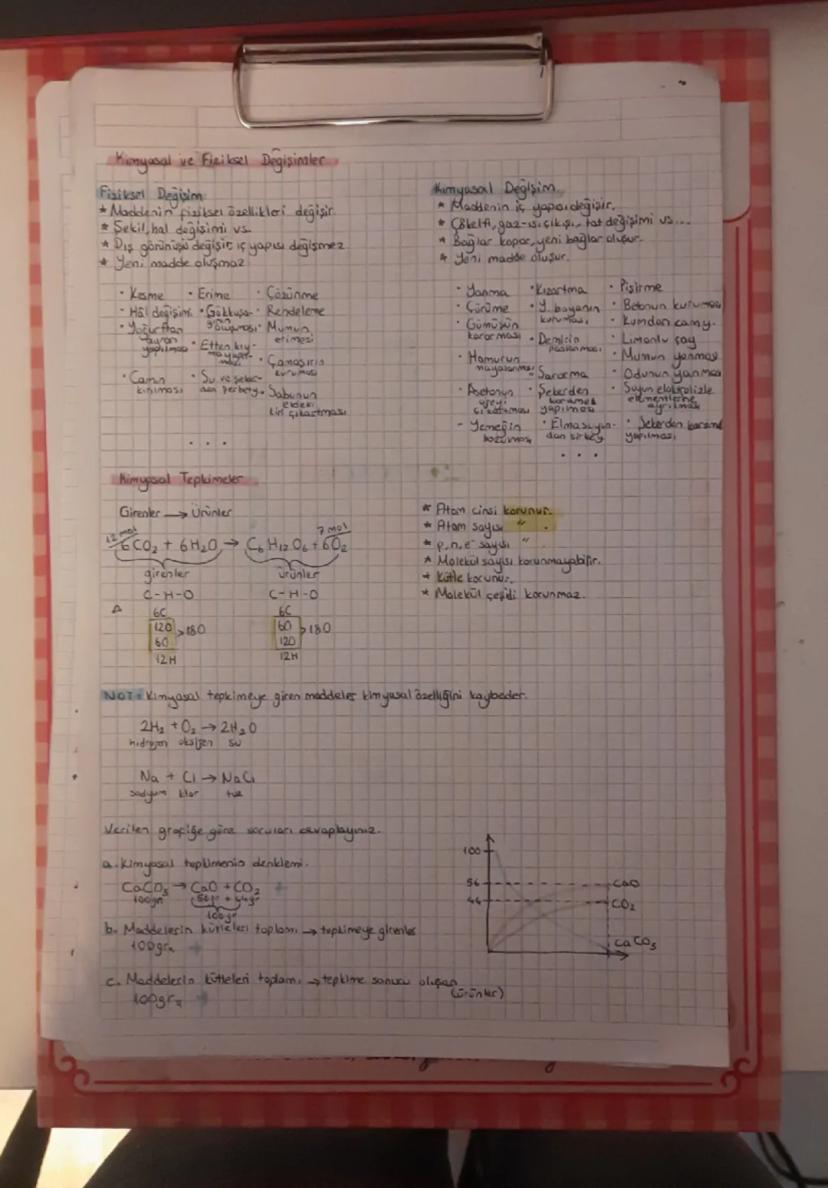 Kimyasal ve Fiziksel Değişimler
Fiziksel Değişim
* Maddenin fiziksel özellikleri değişir.
* Şekil, hal değişimi vs.
* Dış görünüşü değişir, iç yapısı değişmez
* Yeni madde oluşmaz
· Kesme · Erime · Çözünme
· Hâl değişimi · Gökkuşağının oluşması · Rendeleme
· Yoğurttan ayran yapılması · Etten kıyma yapılması · Mumun erimesi
· Camın kırılması · Su ve şekerden şerbet · Çamaşırın kuruması
· Sabunun eldeki kiri çıkartması
...
Kimyasal Değişim
* Maddenin iç yapısı değişir.
* Çökelti, gaz-ısı çıkışı, tat değişimi vs...
* Bağlar kopar, yeni bağlar oluşur.
* Yeni madde oluşur.
· Yanma · Kızartma · Pişirme
· Çürüme · Y. boyanın kuruması · Betonun kuruması
· Gümüşün kararması · Demirin paslanması · Kumdan cam y.
· Limonlu çay
· Hamurun mayalanması · Sararma · Mumun yanması
· Odunun yanması
· Asetonun ojeyi çıkartması · Şekerden karamel yapılması · Suyun elektrolizle elementlerine ayrılması
- Yemeğin bozulması · Elma suyundan sirkey · Şekerden karamel yapılması
...
Kimyasal Tepkimeler
Girenler → Ürünler
12 mol 7 mol
6CO₂ + 6H₂O → C₆H₁₂O₆ + 6O₂
girenler ürünler
C-H-O C-H-O
6C 6C
12O > 18O 6O > 18O
6O 12O
12H 12H
* Atom cinsi korunur.
* Atom sayısı " .
* p,n,e⁻ sayısı "
* Molekül sayısı korunmayabilir.
* Kütle korunur.
* Molekül çeşidi korunmaz.
NOT: Kimyasal tepkimeye giren maddeler kimyasal özelliğini kaybeder.
2H₂ + O₂ → 2H₂O
hidrojen oksijen su
Na + Cl → NaCl
sodyum klor tuz
Verilen grafiğe göre soruları cevaplayınız.
a. Kimyasal tepkimenin denklemi.
CaCO₃ → CaO + CO₂
100gr 56gr + 44gr
100gr
b. Maddelerin kütleleri toplamı → tepkimeye girenler
100gr
c. Maddelerin kütleleri toplamı → tepkime sonucu oluşan (ürünler)
100gr
100
56 CaO
44 CO₂
CaCO₃